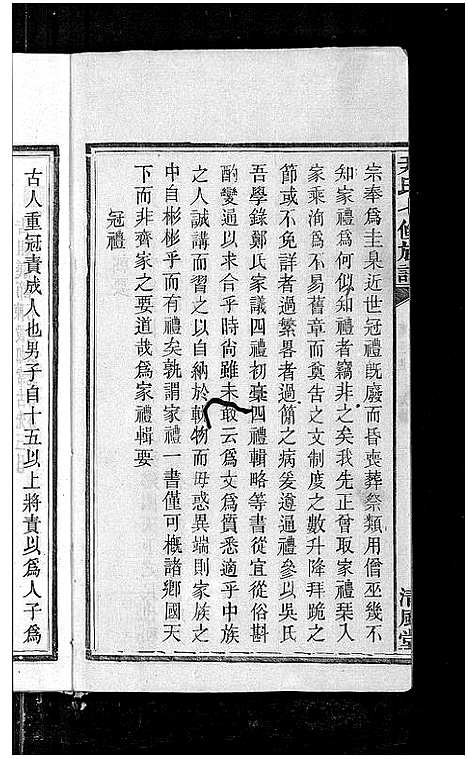 尹氏七修族譜
清風堂
宗奉為圭臬近世冠禮旣廢而昏喪葬祭類用僧巫幾不
知家禮為何似知禮者竊非之矣我先正曾取家禮栞入
家乘洵為不易舊章而奠告之文制度之數升降拜跪之
節或不免詳者過繁畧者過簡之病爰遵通禮參以吳氏
吾學錄鄭氏家議四禮初稾四禮輯略等書從宜從俗斟
酌變通以求合乎時尙雖未敢云為文為質悉適乎中族
之人誠講而習之以自納於軌物而毋惑異端則家族之
中自彬彬乎而有禮矣孰謂家禮一書僅可概諸鄉國天
下而非齊家之要道哉為家禮輯要
冠禮
古人重冠責成人也男子自十五以上將責以為人子為